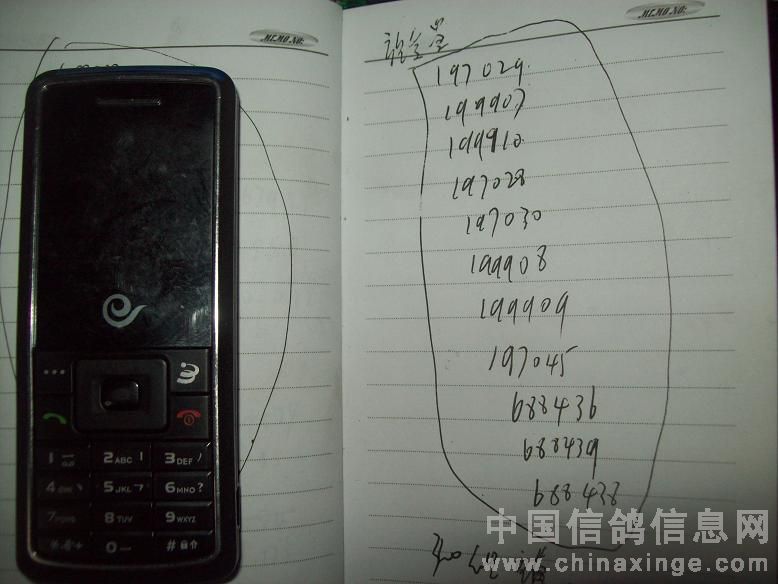 MEMO NO:
MEMO NO:
197029
199907
199910
197028
197030
199908
199909
197045
688436
688439
688438
1
2 ABC
3 DEF
4
5 JKL
6 MNO ?
7 PQRS
8 TUV
9 WXYZ
0
#
中国信鸽信息网
www.chinaxinge.com